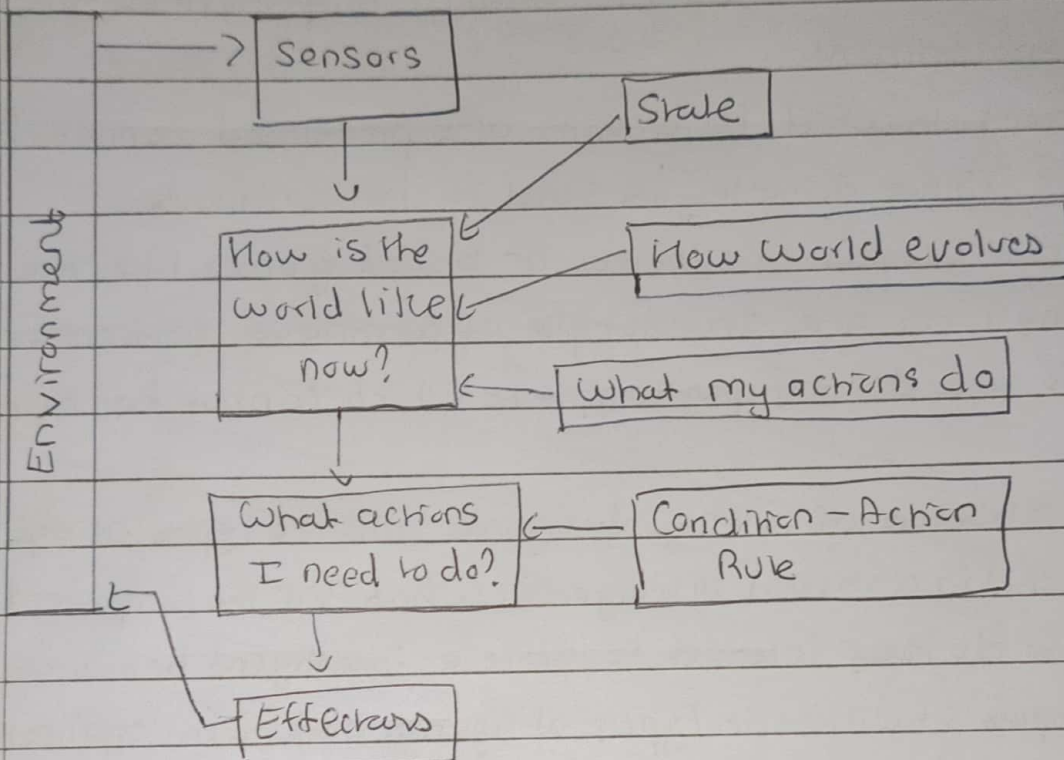 Sensors
State
How is the
world like
now?
How World evolves
What my actions do
Environment
What actions
I need to do?
Condition - Action
Rule
Effectors